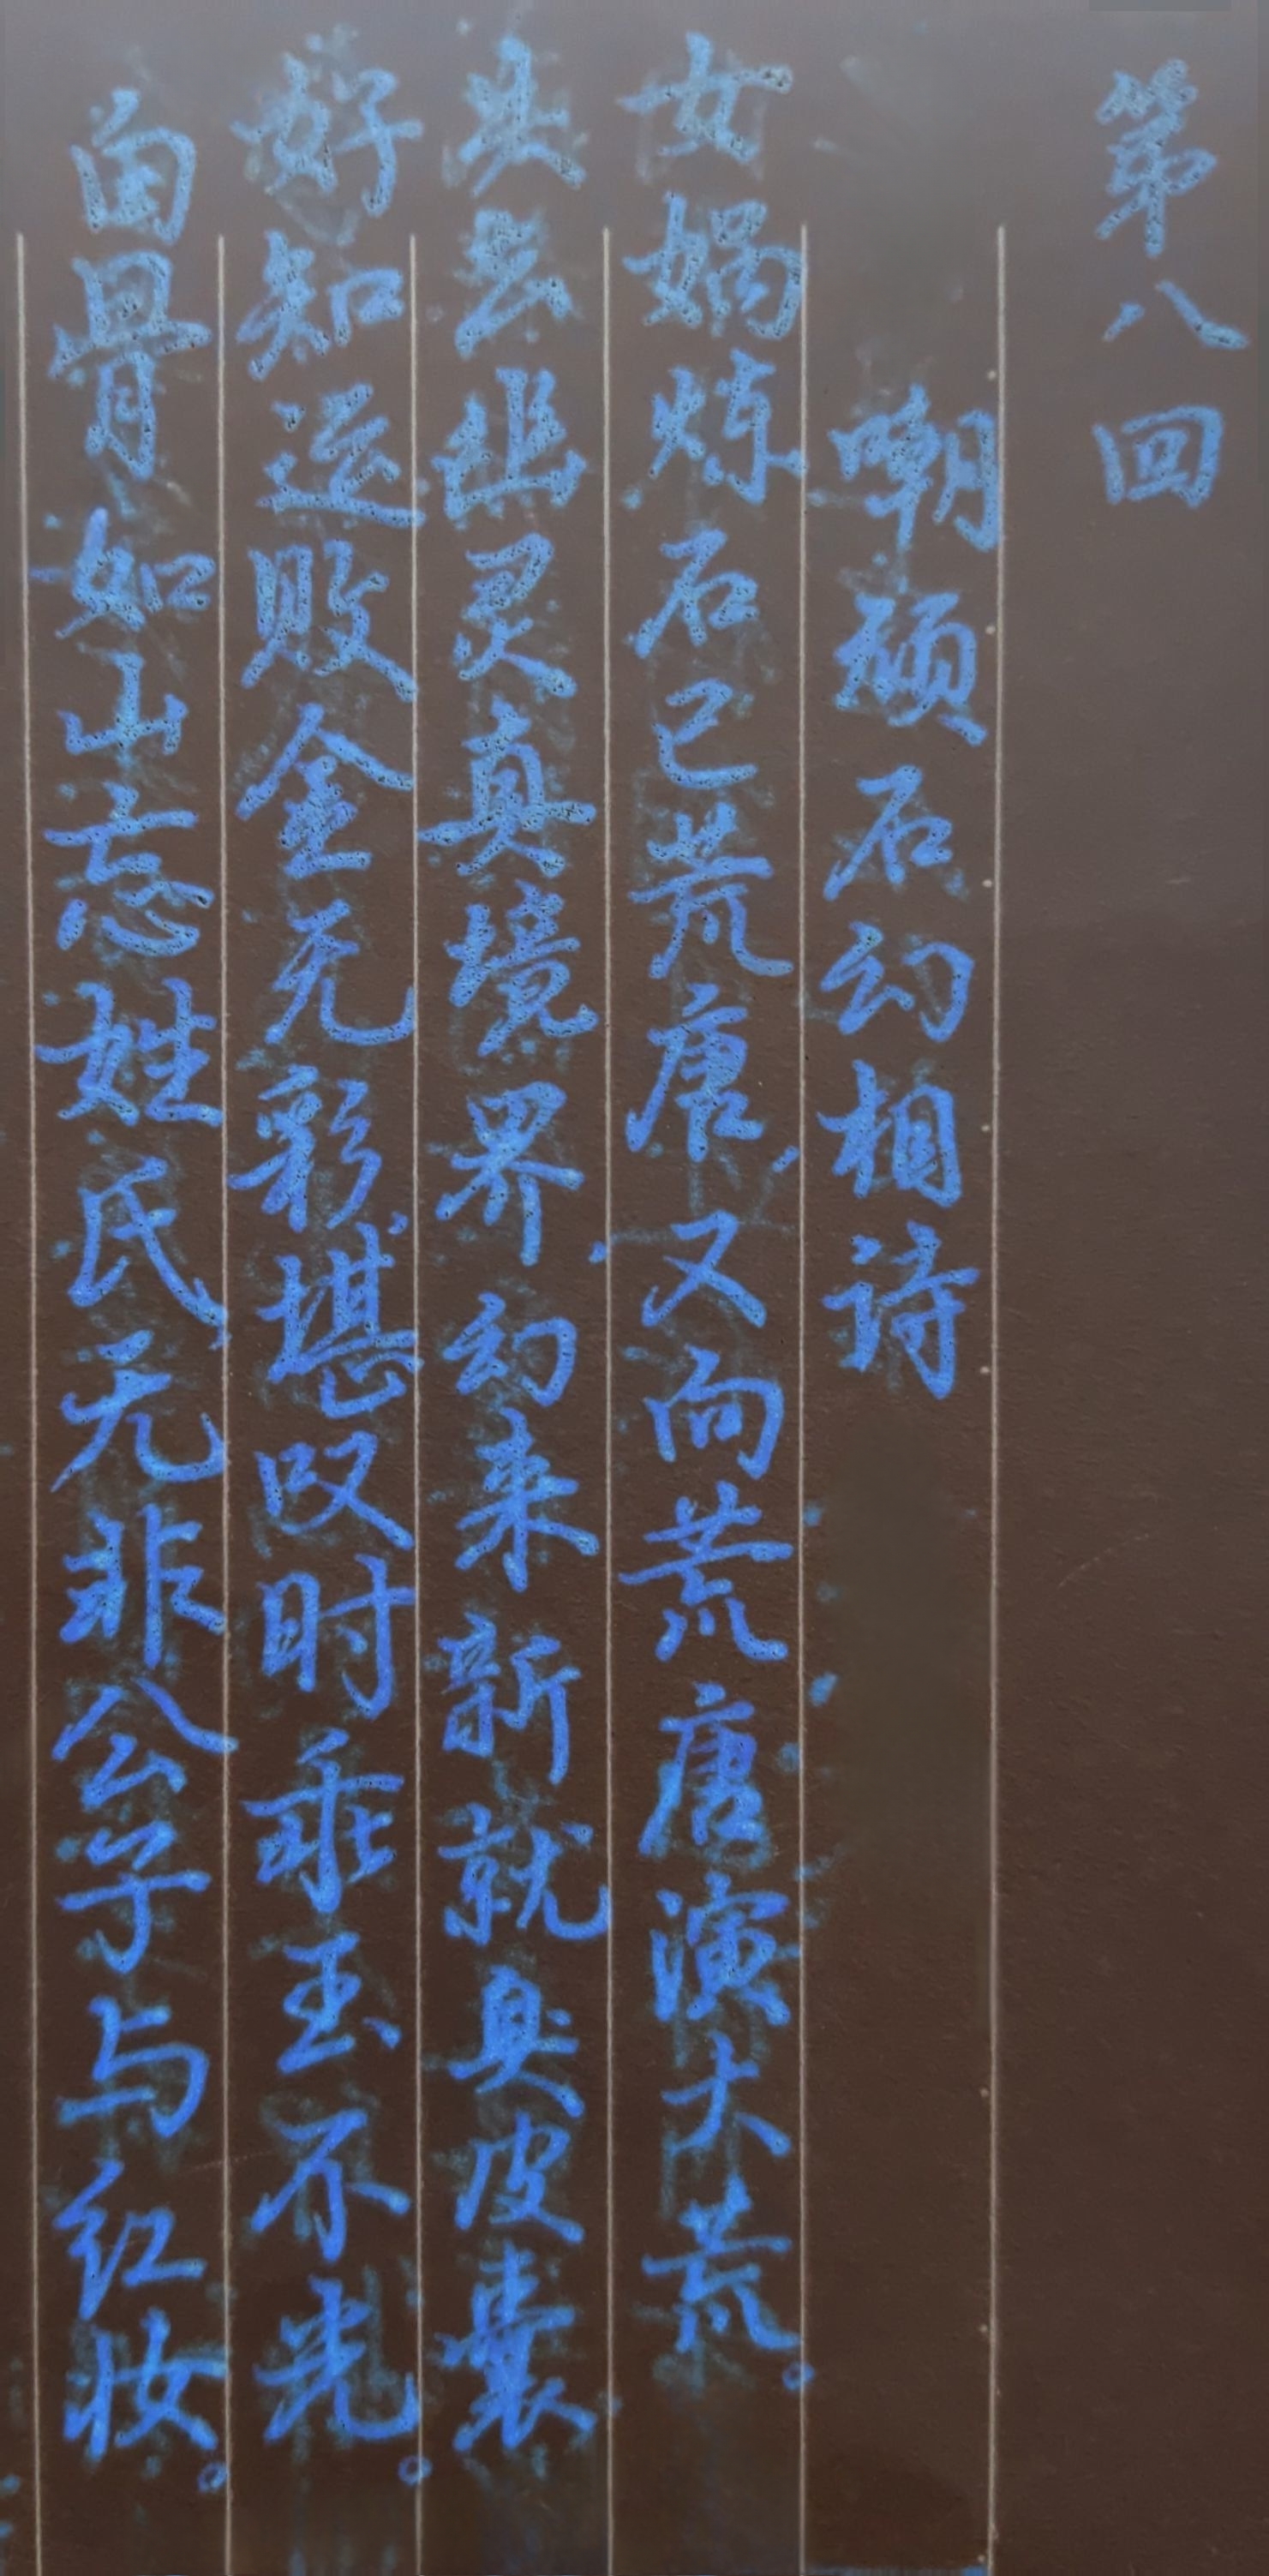 第八回
嘲顽石幻相诗
女娲炼石已荒唐，又向荒唐演大荒。
失去幽灵真境界，幻来新就臭皮囊
好知运败金无彩，堪叹时乖玉不光。
白骨如山忘姓氏，无非公子与红妆。